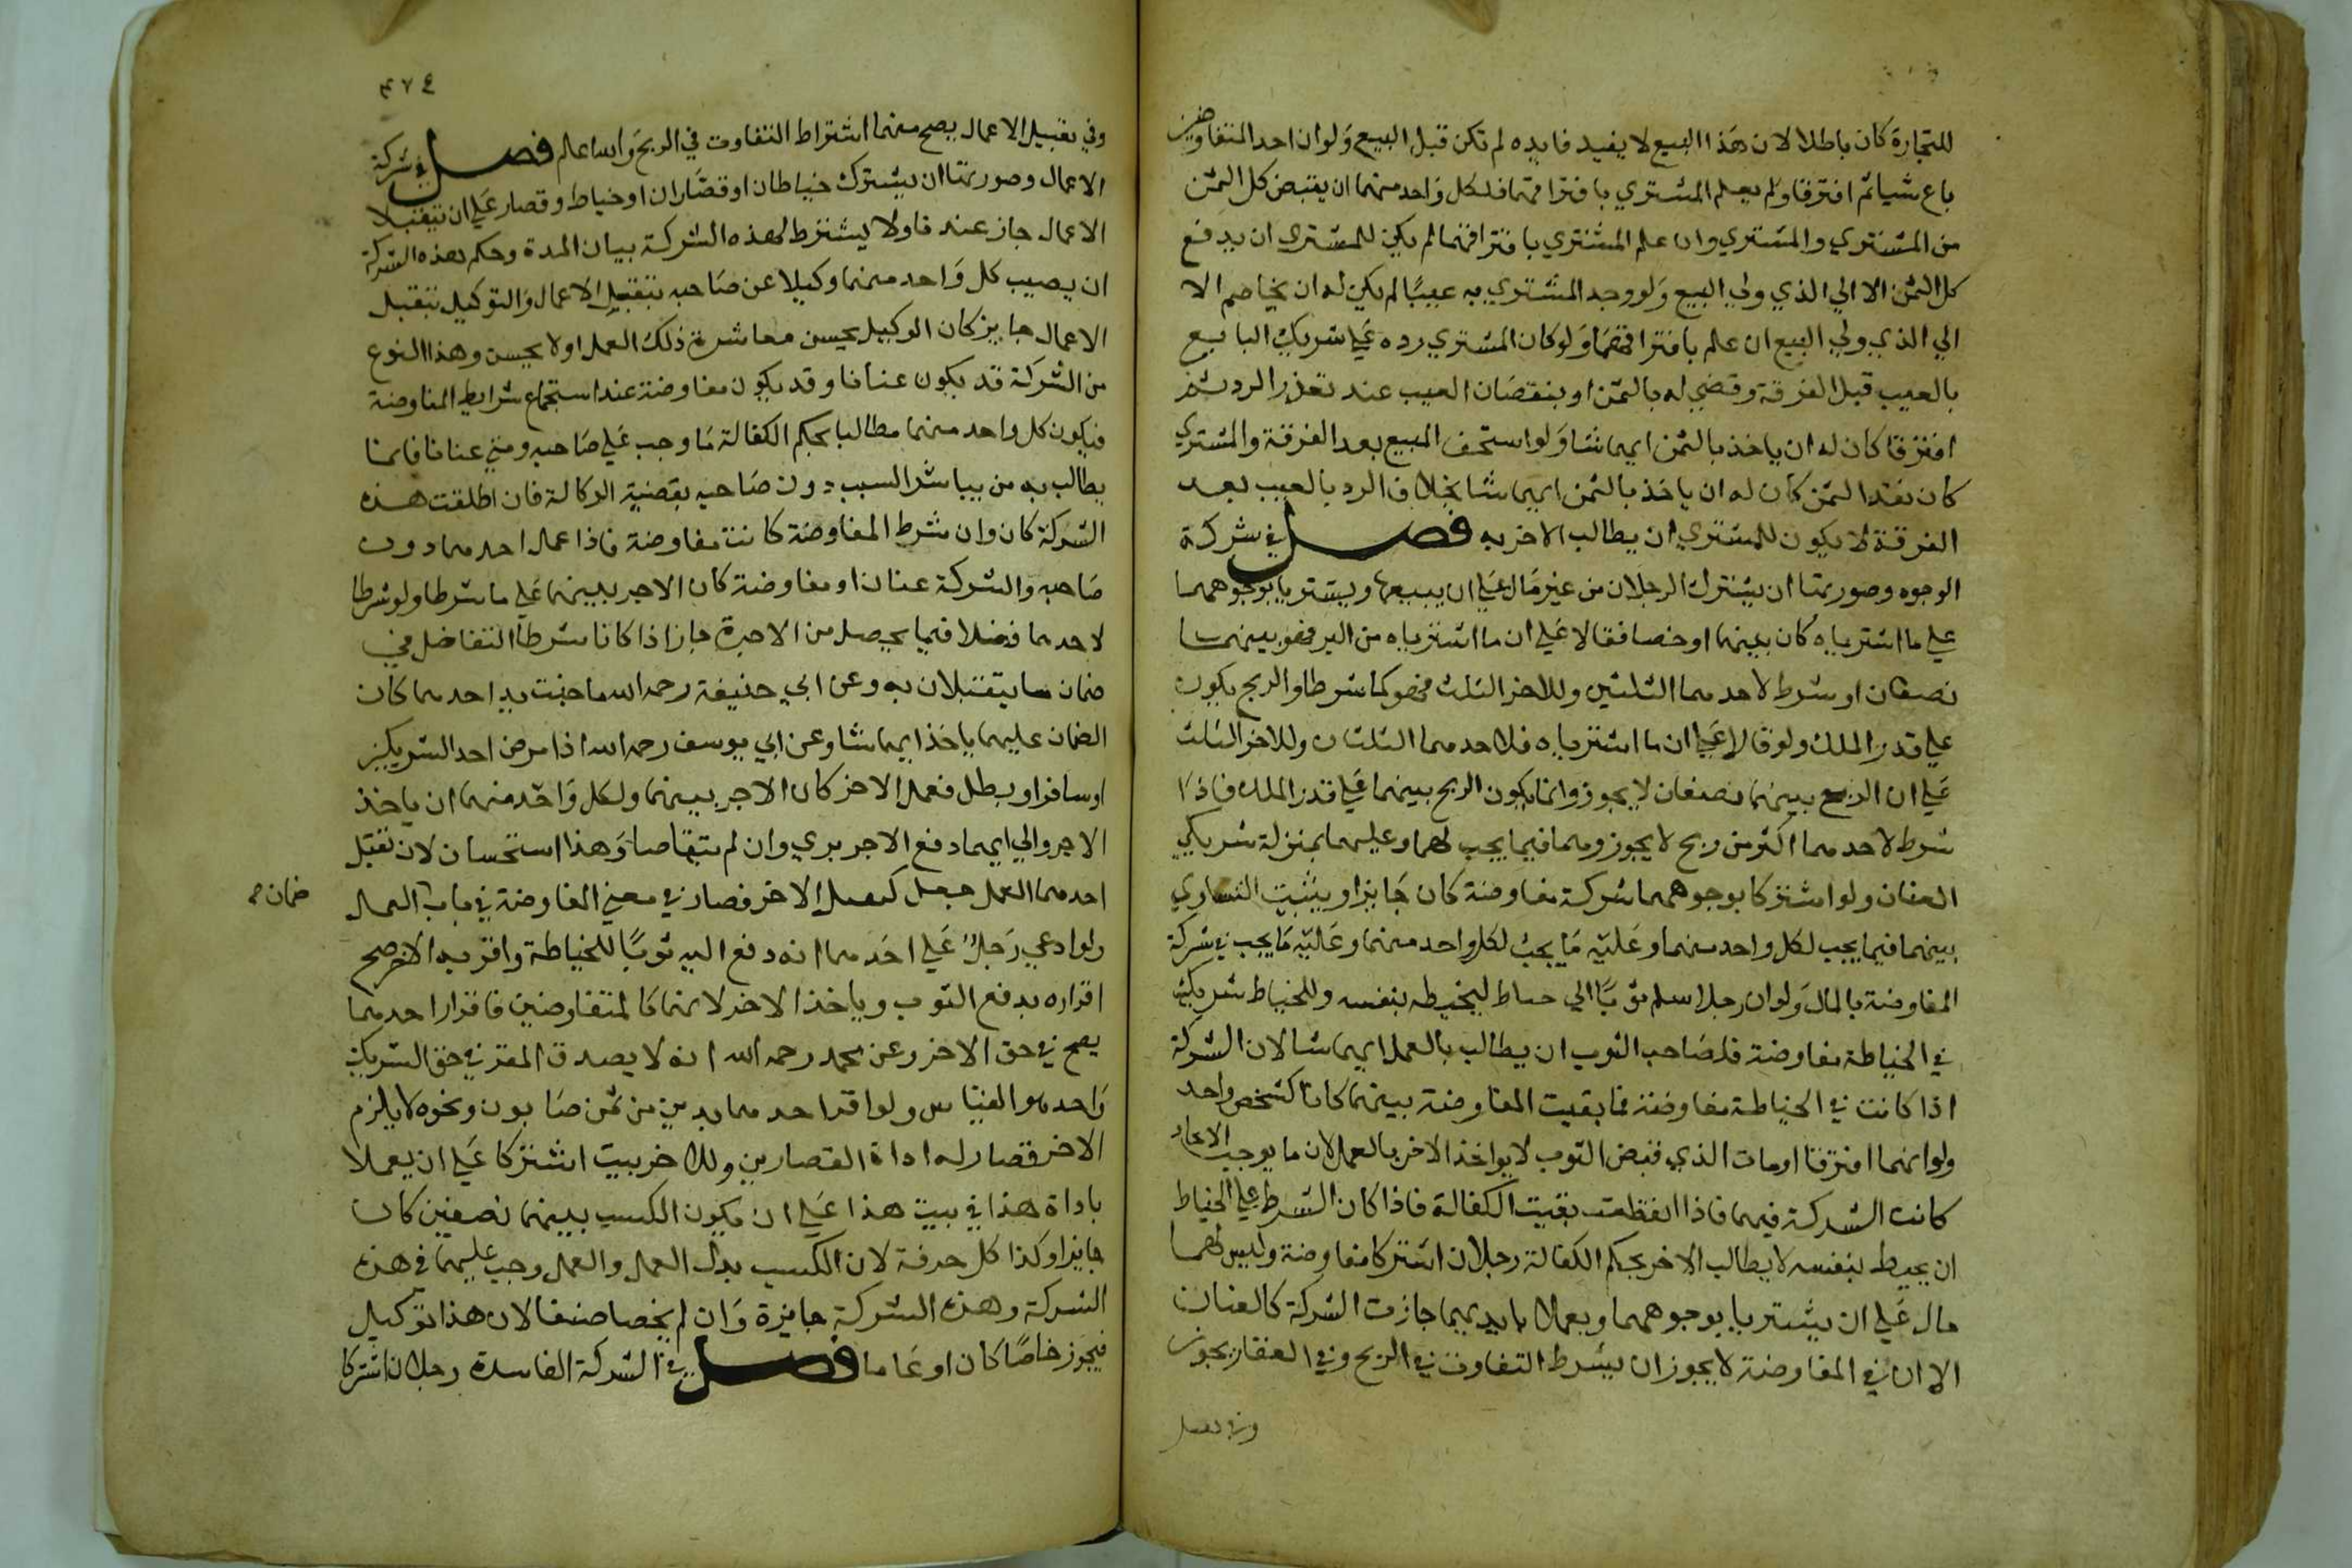 للتجارة كان باطلا لان هذا البيع لا يفيد فايده لم تكن قبل البيع ولو ان احد المتفاوضين
باع شيا ثم افترقا ولم يعلم المشتري بافتراقهما فلكل واحد منهما ان يقبض كل الثمن
من المشتري والمشتري وان علم المشتري بافتراقهما لم يكن للمشتري ان يدفع
كل الثمن الا الي الذي ولي البيع ولو وجد المشتري به عيبًا لم يكن له ان يخاصم الا
الي الذي ولي البيع ان علم بافتراقهما ولو كان المشتري رده علي شريك البايع
بالعيب قبل الفرقة وقضي له بالثمن او بنقصان العيب عند تعذر الرد ثم
افترقا كان له ان ياخذ بالثمن ايهما شا ولو استحق المبيع بعد الفرقة والمشتري
كان نقد الثمن كان له ان ياخذ بالثمن ايهما شا بخلاف الرد بالعيب بعد
الفرقة لا يكون للمشتري ان يطالب الاخر به فصل في شركة
الوجوه وصورتها ان يشترك الرجلان من غير مال علي ان يبيعا ويشتريا بوجوههما
علي ما اشترياه كان بينهما او خصا فقالا علي ان ما اشترياه من البر فهو بينهما
نصفان او شرط لاحدهما الثلثين وللاخر الثلث فهو كما شرطا والربح يكون
علي قدر الملك ولو قالا علي ان ما اشترياه فلاحدهما الثلثان وللاخر الثلث
علي ان الربح بينهما نصفان لا يجوز وانما يكون الربح بينهما علي قدر الملك فاذا
شرط لاحدهما اكثر من ربح لا يجوز وهما فيما يجب لهما وعليهما بمنزلة شريكي
العنان ولو اشتركا بوجوههما شركة مفاوضة كان جايزا ويثبت التساوي
بينهما فيما يجب لكل واحد منهما وعليه ما يجب لكل واحد منهما وعليه ما يجب في شركة
المفاوضة بالمال ولو ان رجلا اسلم ثوبًا الي خياط ليخيطه بنفسه وللخياط شريك
في الخياطة مفاوضة فلصاحب الثوب ان يطالب بالعمل ايهما شا لان الشركة
اذا كانت في الخياطة مفاوضة فما بقيت المفاوضة بينهما كانا كشخص واحد
ولو انهما افترقا او مات الذي قبض الثوب لا يواخذ الاخر بالعمل لان ما يوجب الاتحاد
كانت الشركة فيهما فاذا انقطعت بقيت الكفالة فاذا كان الشرط علي الخياط
ان يخيط بنفسه لا يطالب الاخر بحكم الكفالة رجلان اشتركا مفاوضة وليس لهما
مال علي ان يشتريا بوجوههما ويعملا بايديهما جازت الشركة كالعنان
الا ان في المفاوضة لا يجوز ان يشرط التفاوت في الربح وفي العقار يجوز
وفي تقبل
٤٧٤
وفي تقبيل الاعمال يصح منهما اشتراط التفاوت في الربح والله اعلم فصل في شركة
الاعمال وصورتها ان يشترك خياطان او قصاران او خياط وقصار علي ان يتقبلا
الاعمال جاز عندنا ولا يشترط لهذه الشركة بيان المدة وحكم هذه الشركة
ان يصيب كل واحد منهما وكيلا عن صاحبه بتقبل الاعمال والتوكيل بتقبل
الاعمال جايز كان الوكيل يحسن مباشرة ذلك العمل او لا يحسن وهذا النوع
من الشركة قد يكون عنانا وقد يكون مفاوضة عند استجماع شرايط المفاوضة
فيكون كل واحد منهما مطالبا بحكم الكفالة ما وجب علي صاحبه ومتي عنانا فانما
يطالب به من يباشر السبب دون صاحبه بقضية الوكالة فان اطلقت هذه
الشركة كان وان شرط المفاوضة كانت مفاوضة فاذا عمل احدهما دون
صاحبه والشركة عنان او مفاوضة كان الاجر بينهما علي ما شرطا ولو شرطا
لاحدهما فضلا فيما يحصل من الاجرة جاز اذا كانا شرطا التفاضل في
ضمان ما يتقبلان به وعن ابي حنيفة رحمه الله ما جنت يد احدهما كان
الضمان عليهما ياخذ ايهما شا وعن ابي يوسف رحمه الله اذا مرض احد الشريكين
او سافر او بطل فعمل الاخر كان الاجر بينهما ولكل واحد منهما ان ياخذ
الاجر والي ايهما دفع الاجر بري وان لم يتفاوضا وهذا استحسان لان تقبل
احدهما العمل جعل كعمل الاخر فصار في معني المفاوضة في باب العمل
ضمان
ولو ادعي رجل علي احدهما انه دفع اليه ثوبًا للخياطة واقر به الاخر صح
اقراره بدفع الثوب وياخذ الاخر لانهما كالمتفاوضين فاقرار احدهما
يصح في حق الاخر وعن محمد رحمه الله انه لا يصدق المقر في حق الشريك
واحد هو القياس ولو اقر احدهما بدين من ثمن صابون ونحوه لا يلزم
الاخر قصار له اداة القصارين وللاخر بيت اشتركا علي ان يعملا
باداة هذا في بيت هذا علي ان يكون الكسب بينهما نصفين كان
جايزا وكذا كل حرفة لان الكسب بدل العمل والعمل وجب عليهما في هذه
الشركة وهذه الشركة جايزة وان لم يخصا صنفا لان هذا توكيل
فيجوز خاصًا كان او عاما فصل في الشركة الفاسدة رجلان اشتركا